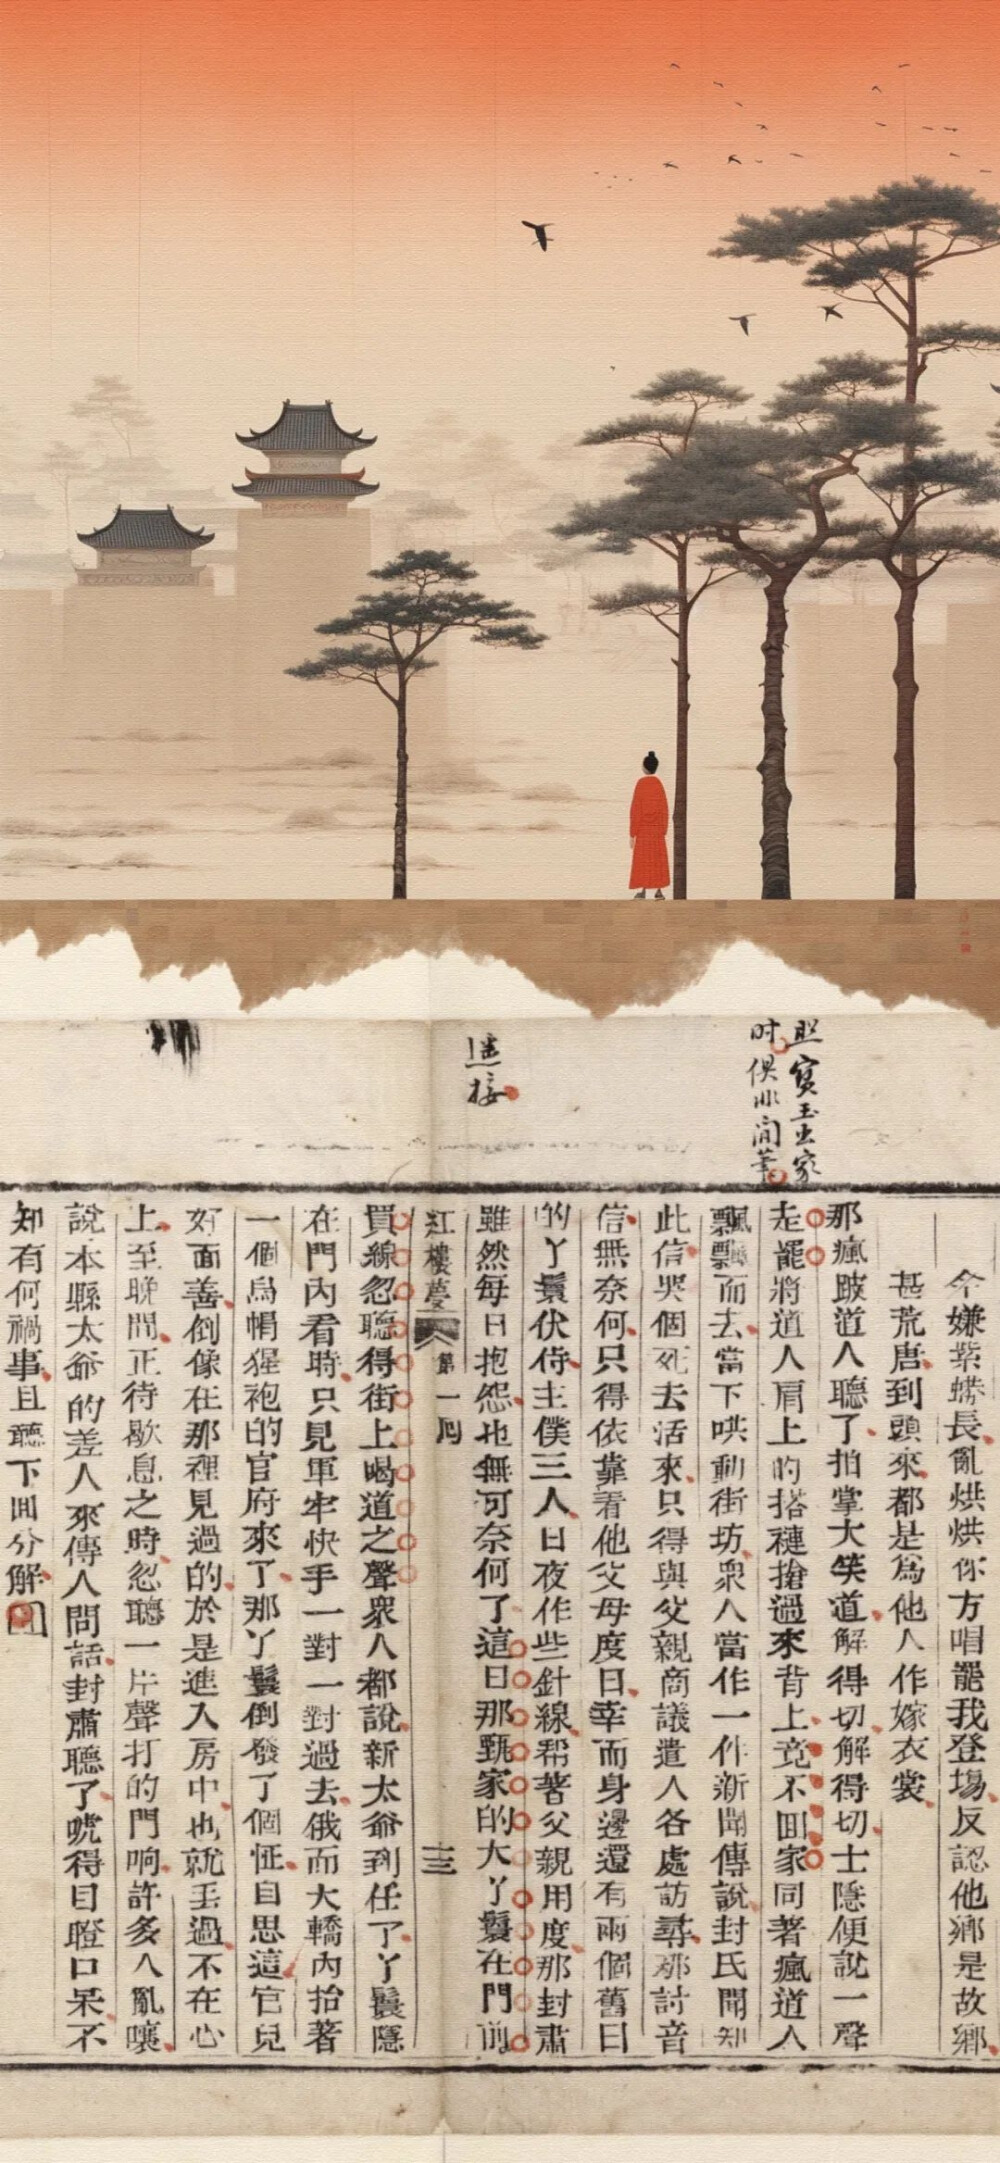 照寶玉出家
时俱非閒筆
遥接
今嫌紫蟒長亂烘烘你方唱罷我登場反認他鄉是故鄉
甚荒唐到頭來都是為他人作嫁衣裳
那瘋跛道人聽了拍掌大笑道解得切解得切士隱便說一聲
走罷將道人肩上的搭褳搶過來背上竟不回家同著瘋道人
飄飄而去當下哄動街坊眾人當作一件新聞傳說封氏聞知
此信哭個死去活來只得與父親商議遣人各處訪尋那討音
信無奈何只得依靠着他父母度日幸而身邊還有兩個舊日
的丫鬟伏侍主僕三人日夜作些針線帮著父親用度那封肅
雖然每日抱怨也無可奈何了這日那甄家的大丫鬟在門前
紅樓夢 第一回
買線忽聽得街上喝道之聲眾人都說新太爺到任了丫鬟隱
在門內看時只見軍牢快手一對一對過去俄而大轎內抬著
一個烏帽猩袍的官府來了那丫鬟倒發了個怔自思這官兒
好面善倒像在那裡見過的於是進入房中也就丟過不在心
上至晚間正待歇息之時忽聽一片聲打的門响許多人亂嚷
說本縣太爺的差人來傳人問話封肅聽了唬得目瞪口呆不
知有何禍事且聽下回分解